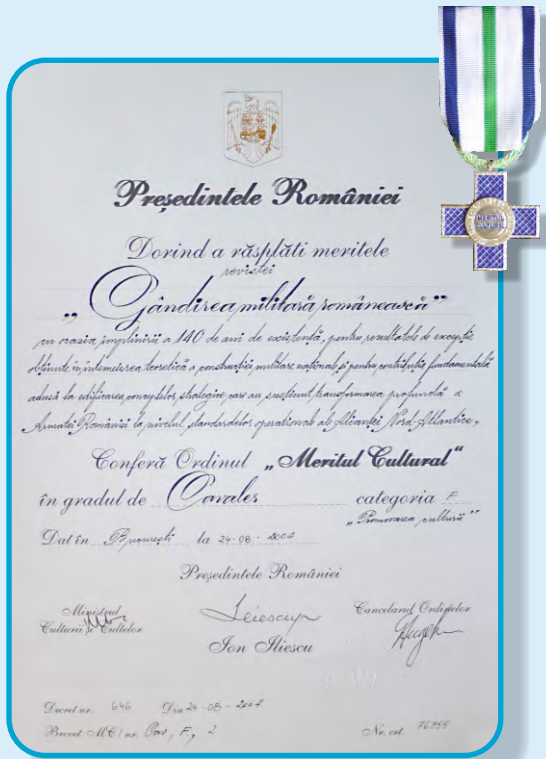 MERITUL
CULTURAL
Președintele României
Dorind a răsplăti meritele
revistei
„Gândirea militară românească”
cu ocazia împlinirii a 140 de ani de existență, pentru rezultatele de excepție
obținute în întemeierea teoretică a construcției militare naționale și pentru contribuția fundamentală
adusă la edificarea conceptelor strategice care au susținut transformarea profundă a
Armatei României la nivelul standardelor operaționale ale Alianței Nord-Atlantice,
Conferă Ordinul „Meritul Cultural”
în gradul de Cavaler categoria F
„Promovarea culturii”
Dat în București la 24-08-2004
Președintele României
Ministrul
Culturii și Cultelor
Cancelarul Ordinelor
Ion Iliescu
Decret nr. 646 Din 24-08-2004
Brevet MC/nr. Cav, F, 2
Nr. crt. 76955